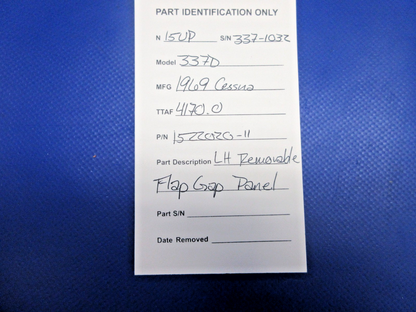 PART IDENTIFICATION ONLY
N 15UP S/N 337-1032
Model 337D
MFG 1969 Cessna
TTAF 4170.0
P/N 1522020-11
Part Description LH Removable
Flap Gap Panel
Part S/N
Date Removed